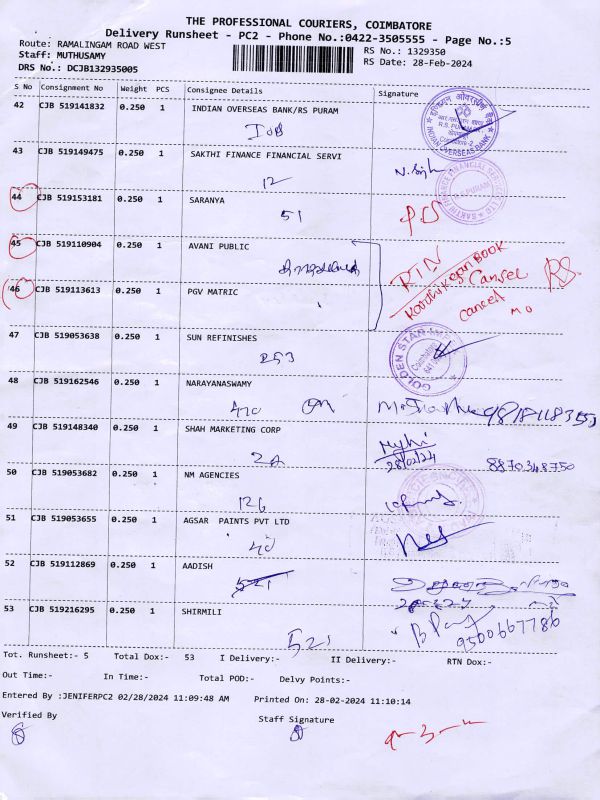 THE PROFESSIONAL COURIERS, COIMBATORE
Delivery Runsheet - PC2 - Phone No.:0422-3505555 - Page No.:5
Route: RAMALINGAM ROAD WEST
RS No.: 1329350
Staff: MUTHUSAMY
RS Date: 28-Feb-2024
DRS No.: DCJB132935005
S No Consignment No Weight PCS Consignee Details Signature
42 CJB 519141832 0.250 1 INDIAN OVERSEAS BANK/RS PURAM
IOB
43 CJB 519149475 0.250 1 SAKTHI FINANCE FINANCIAL SERVI
12
44 CJB 519153181 0.250 1 SARANYA
51
45 CJB 519110904 0.250 1 AVANI PUBLIC
RTN
Book
Cancel
RS
46 CJB 519113613 0.250 1 PGV MATRIC
Cancel
47 CJB 519053638 0.250 1 SUN REFINISHES
GOLDEN STAR
253
48 CJB 519162546 0.250 1 NARAYANASWAMY
49 CJB 519148340 0.250 1 SHAH MARKETING CORP
28/02/24 8870348750
50 CJB 519053682 0.250 1 NM AGENCIES
126
51 CJB 519053655 0.250 1 AGSAR PAINTS PVT LTD
40
52 CJB 519112869 0.250 1 AADISH
521
53 CJB 519216295 0.250 1 SHIRMILI
521
9500667786
Tot. Runsheet:- 5 Total Dox:- 53 I Delivery:- II Delivery:- RTN Dox:-
Out Time:- In Time:- Total POD:- Delvy Points:-
Entered By :JENIFERPC2 02/28/2024 11:09:48 AM Printed On: 28-02-2024 11:10:14
Verified By Staff Signature